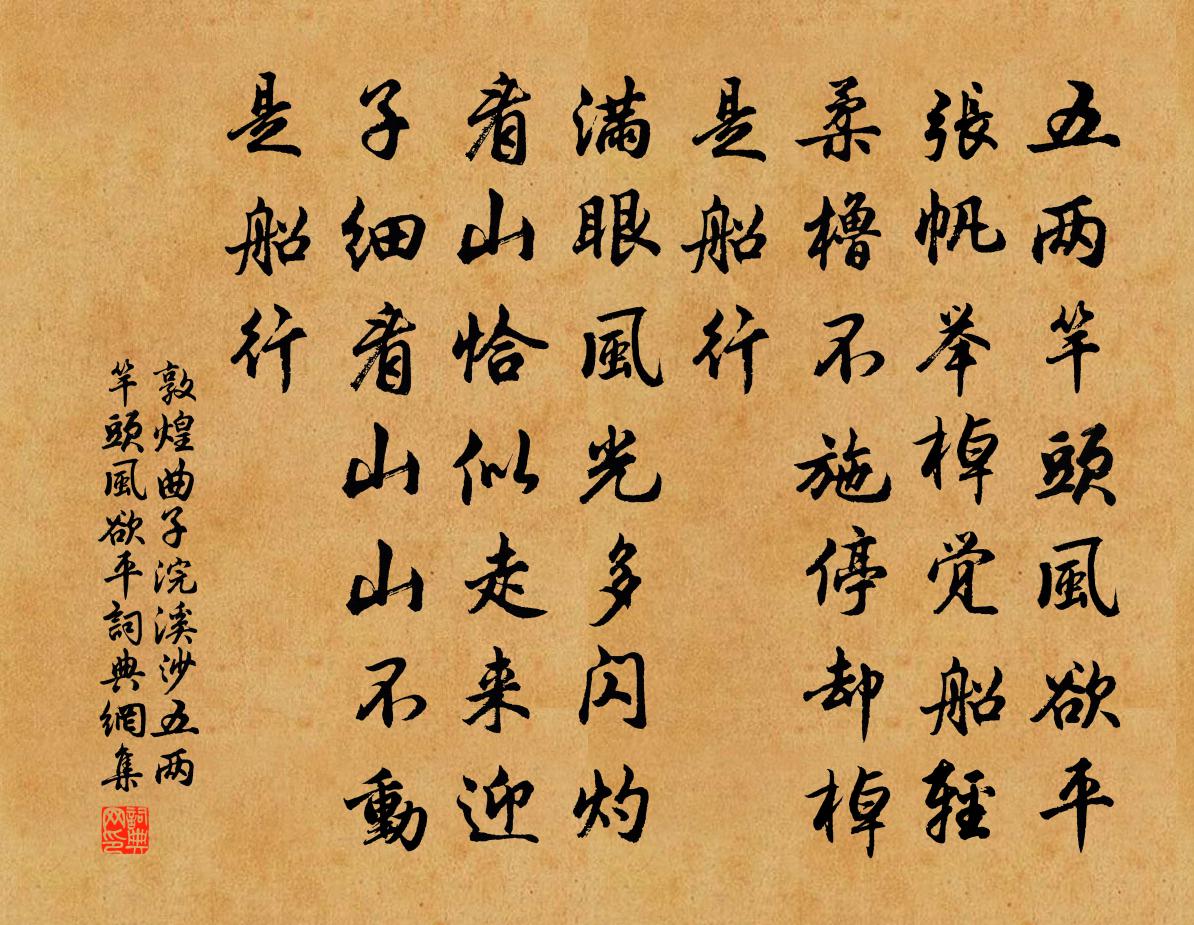 五两竿頭風欲平
張帆举棹觉船輕
柔櫓不施停却棹
是船行
满眼風光多闪灼
看山恰似走来迎
子细看山山不動
是船行
敦煌曲子浣溪沙五两
竿頭風欲平詞典網集
詞典网印